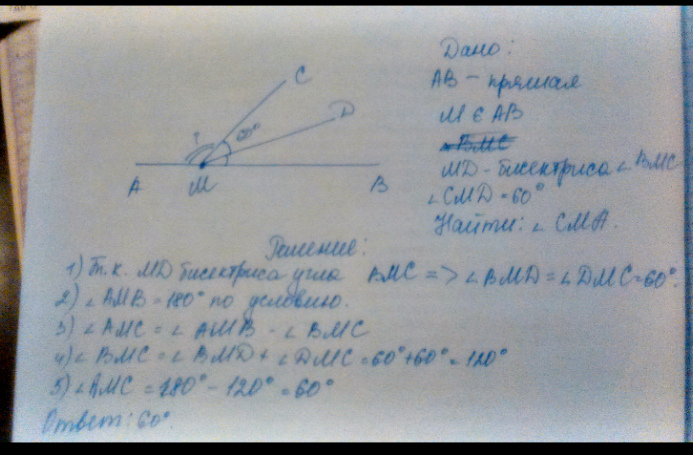 Дано:
AB - прямая
M ∈ AB
∠BMC
MD - бисектриса ∠ BMC
∠ CMD = 60°
Найти: ∠ CMA.
C
D
?
60°
A
M
B
Решение:
1) Т.к. MD бисектриса угла BMC => ∠ BMD = ∠ DMC = 60°.
2) ∠ AMB = 180° по условию.
3) ∠ AMC = ∠ AMB - ∠ BMC
4) ∠ BMC = ∠ BMD + ∠ DMC = 60° + 60° = 120°
5) ∠ AMC = 180° - 120° = 60°
Ответ: 60°.